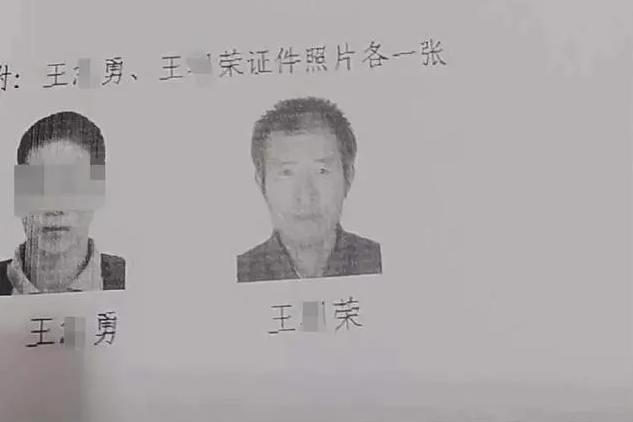 附：王 勇、王 荣证件照片各一张
王 勇
王 荣